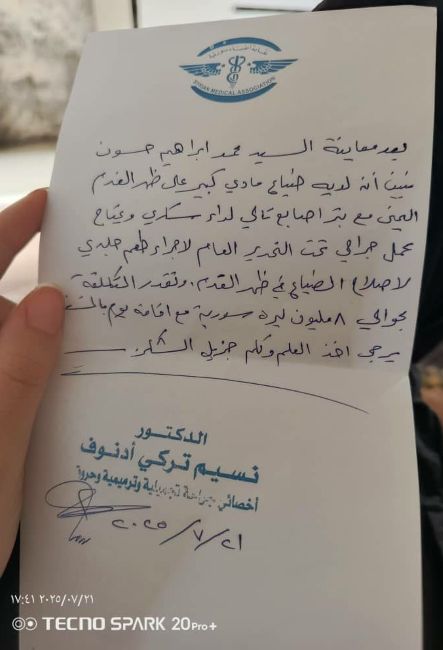 SYRIAN MEDICAL ASSOCIATION
بعد معاينة السيد محمد ابراهيم حسون
تبين أن لديه ضياع مادي كبير على ظهر القدم
اليمنى مع بتر اصابع تالي لداء سكري ويحتاج
عمل جراحي تحت التخدير العام لاجراء طعم جلدي
لاصلاح الضياع في ظهر القدم، وتقدر التكلفة
بحوالي ٨ مليون ليرة سورية مع اقامة يوم
يرجى اخذ العلم ولكم جزيل الشكر
الدكتور
نسيم تركي أدنوف
أخصائي جراحة تجميلية وترميمية وحروق
٢٠٢٥/٧/٢١
١٧:٤١ ٢٠٢٥/٠٧/٢١
TECNO SPARK 20 Pro+